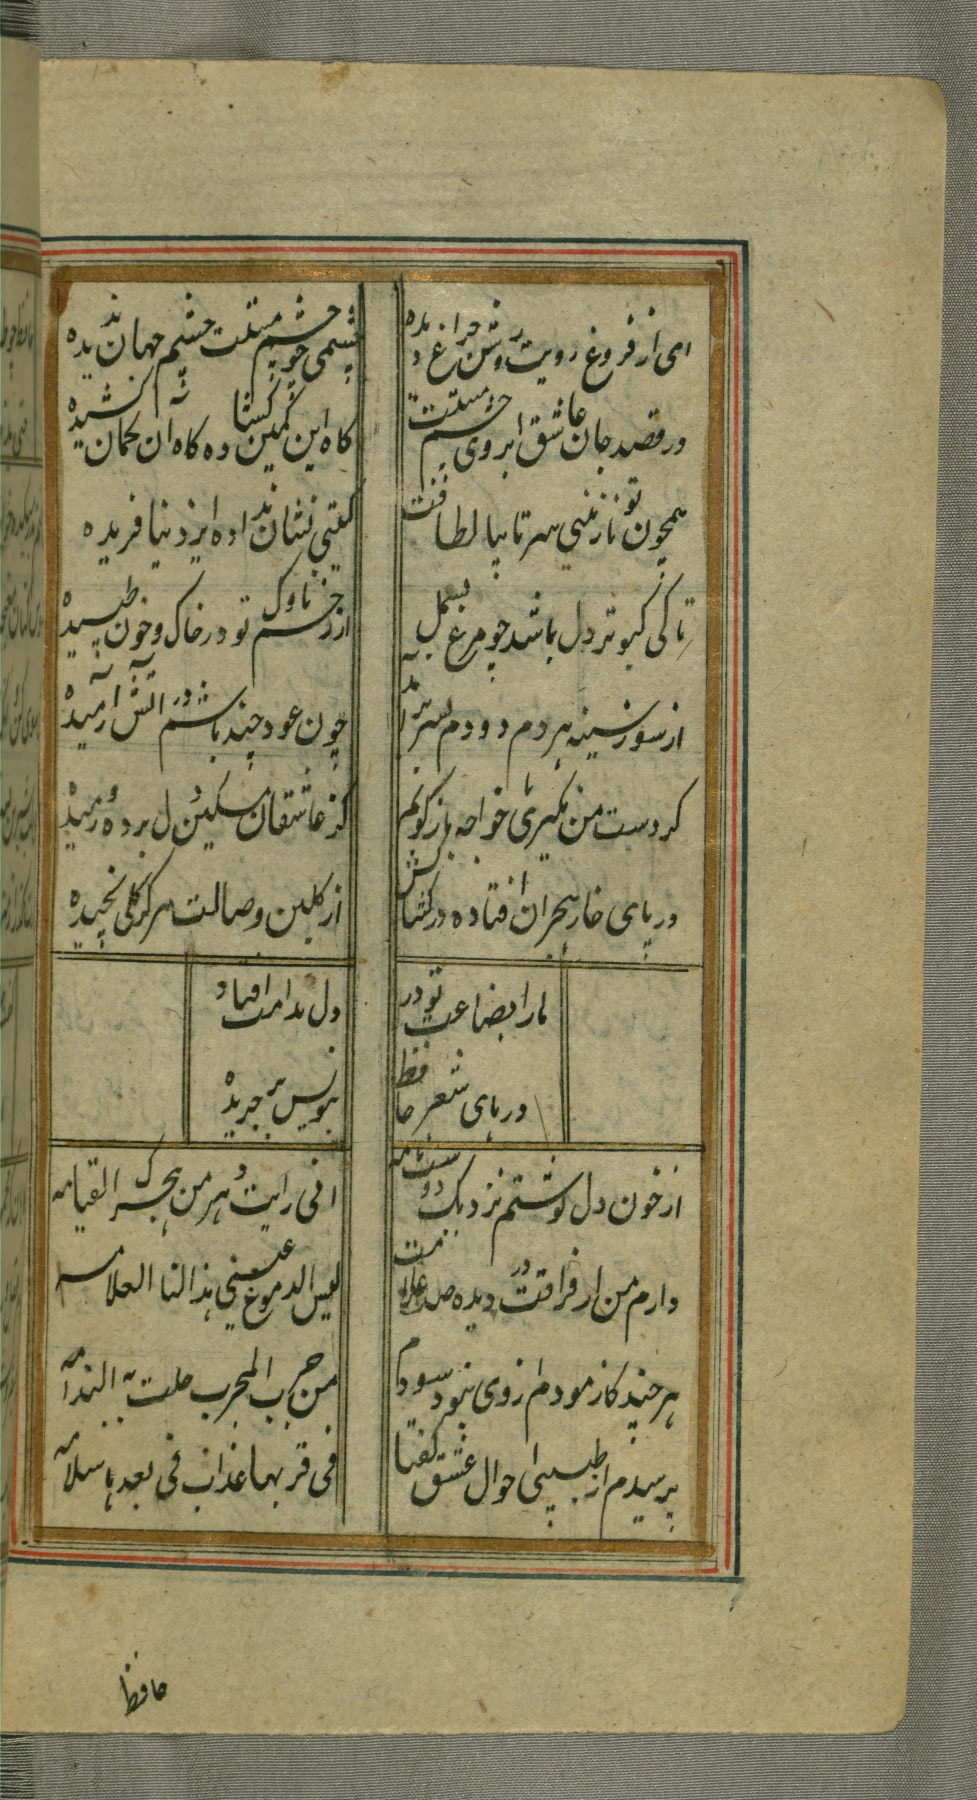 ای از فروغ رویت روشن چراغ دیده
چشمی چو چشم مستت چشم جهان ندیده
در قصد جان عاشق ابروی چشم مستت
کاه این کمین کشاده کاه ان کمان کشیده
همچون تو نازنینی سر تا بپا لطافت
کیتی نشان نداده ایزد نیافریده
تا کی کبوتر دل باشد چو مرغ بسمل
از زخم ناوک تو در خاک و خون طپیده
از سوز سینه هر دم دودم بسر بر آید
چون عود چند باشم در اتش ارمیده
کر دست من نکیری با خواجه باز کویم
کز عاشقان مسکین دل برده و رمیده
در پای خار هجران افتاده در کشاکش
از کلبن وصالت هرکز کلی نچیده
ما را بضاعت
دل بدامت افتاد
در پای شعر حافظ
بنویس بر جریده
از خون دل نوشتم نزدیک دوست نامه
انی رایت دهر من هجرک القیامه
دارم من از فراقت در دیده صد علامت
لیس الدموع عینی هذا لنا العلامه
هر چند کازمودم از وی نبود سودم
من جرب المجرب حلت به الندامه
پرسیدم از طبیبی احوال عشق کفتا
فی قربها عذاب فی بعدها سلامه
حافظ